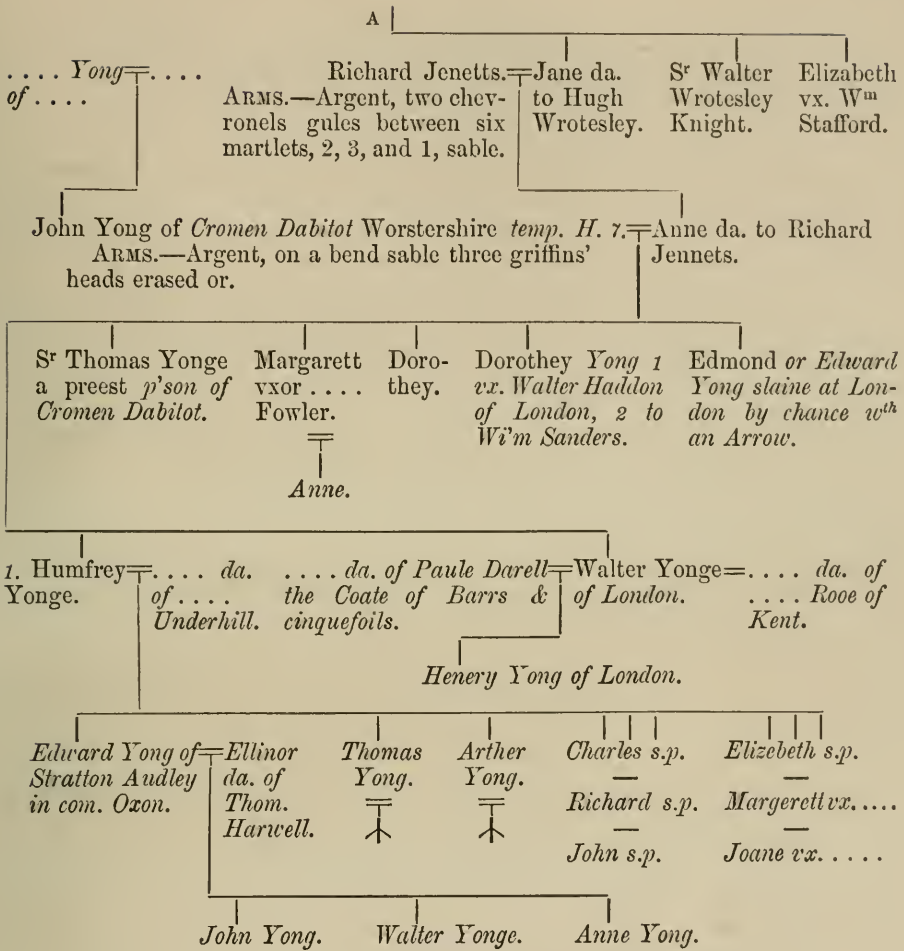 A
.... Yong=....
of ....
Richard Jenetts.=Jane da.
ARMS.—Argent, two chev-
ronels gules between six
martlets, 2, 3, and 1, sable.
to Hugh
Wrotesley.
Sr Walter
Wrotesley
Knight.
Elizabeth
vx. Wm
Stafford.
John Yong of Cromen Dabitot Worstershire temp. H. 7.=Anne da. to Richard
ARMS.—Argent, on a bend sable three griffins'
heads erased or.
Jennets.
Sr Thomas Yonge
a preest p'son of
Cromen Dabitot.
Margarett
vxor ....
Fowler.
Anne.
Doro-
they.
Dorothey Yong 1
vx. Walter Haddon
of London, 2 to
Wi'm Sanders.
Edmond or Edward
Yong slaine at Lon-
don by chance wth
an Arrow.
1. Humfrey=
Yonge.
.... da.
of ....
Underhill.
.... da. of Paule Darell=
the Coate of Barrs &
cinquefoils.
Walter Yonge=
of London.
.... da. of
.... Rooe of
Kent.
Henery Yong of London.
Edward Yong of=
Stratton Audley
in com. Oxon.
Ellinor
da. of
Thom.
Harwell.
Thomas
Yong.
Arther
Yong.
Charles s.p.
—
Richard s.p.
—
John s.p.
Elizebeth s.p.
—
Margerett vx.....
—
Joane vx.....
John Yong.
Walter Yonge.
Anne Yong.